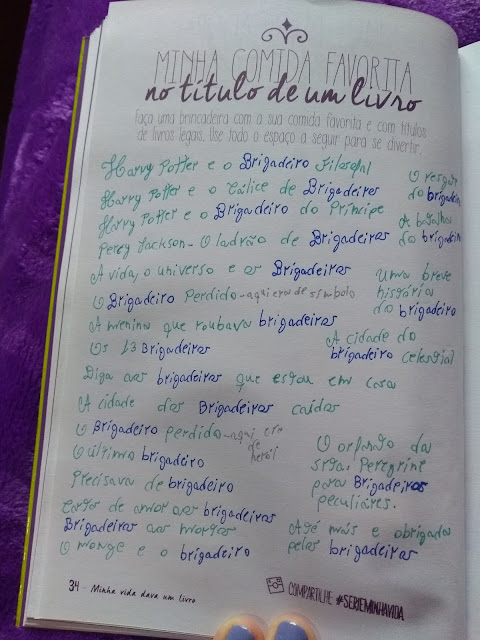 MINHA COMIDA FAVORITA
no título de um livro
Faça uma brincadeira com a sua comida favorita e com títulos
de livros legais. Use todo o espaço a seguir para se divertir.
Harry Potter e o Brigadeiro Filosofal
Harry Potter e o Cálice de Brigadeiros
Harry Potter e o Brigadeiro do Príncipe
Percy Jackson - O ladrão de Brigadeiros
A vida, o universo e os Brigadeiros
O Brigadeiro Perdido - aqui era de símbolo
A menina que roubava brigadeiros
Os 13 Brigadeiros
Diga aos brigadeiros que estou em casa
A cidade dos Brigadeiros caídos
O Brigadeiro perdido - aqui era
de
herói
O último brigadeiro
Precisava de brigadeiro
Cartas de amor aos brigadeiros
Brigadeiros aos mortos
O monge e o brigadeiro
O resgate
do brigadeiro
A batalha
do brigadeiro
Uma breve
história
do brigadeiro
A cidade do
brigadeiro celestial
O orfanato da
srta. Peregrine
para Brigadeiros
peculiares.
Até mais e obrigada
pelos brigadeiros
34 - Minha vida dava um livro
COMPARTILHE #SERIEMINHAVIDA